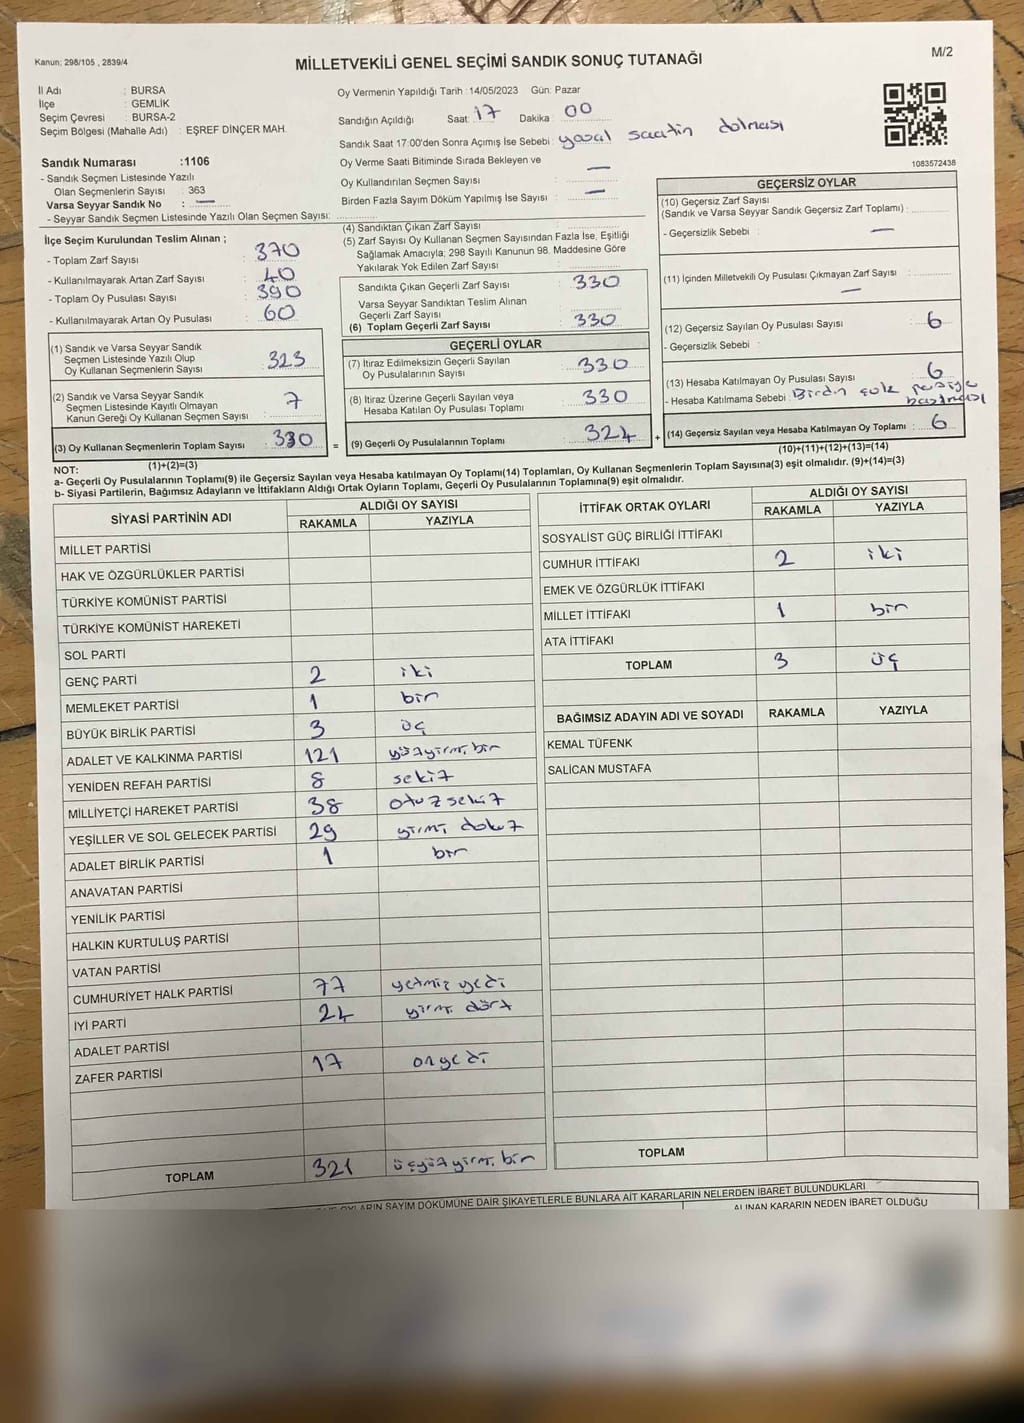 Kanun: 298/105 , 2839/4
MİLLETVEKİLİ GENEL SEÇİMİ SANDIK SONUÇ TUTANAĞI
M/2
İl Adı : BURSA
İlçe : GEMLİK
Seçim Çevresi : BURSA-2
Seçim Bölgesi (Mahalle Adı) : EŞREF DİNÇER MAH.
Oy Vermenin Yapıldığı Tarih :14/05/2023 Gün: Pazar
Sandığın Açıldığı Saat: 17 Dakika : 00
Sandık Saat 17:00'den Sonra Açımış İse Sebebi : yasal saatin dolması
Oy Verme Saati Bitiminde Sırada Bekleyen ve
Oy Kullandırılan Seçmen Sayısı : —
Birden Fazla Sayım Döküm Yapılmış İse Sayısı : —
1083572438
Sandık Numarası :1106
- Sandık Seçmen Listesinde Yazılı
Olan Seçmenlerin Sayısı : 363
Varsa Seyyar Sandık No : —
- Seyyar Sandık Seçmen Listesinde Yazılı Olan Seçmen Sayısı:
İlçe Seçim Kurulundan Teslim Alınan ;
- Toplam Zarf Sayısı : 370
- Kullanılmayarak Artan Zarf Sayısı : 40
- Toplam Oy Pusulası Sayısı : 390
- Kullanılmayarak Artan Oy Pusulası : 60
(1) Sandık ve Varsa Seyyar Sandık
Seçmen Listesinde Yazılı Olup
Oy Kullanan Seçmenlerin Sayısı : 323
(2) Sandık ve Varsa Seyyar Sandık
Seçmen Listesinde Kayıtlı Olmayan
Kanun Gereği Oy Kullanan Seçmen Sayısı : 7
(3) Oy Kullanan Seçmenlerin Toplam Sayısı : 330
(1)+(2)=(3)
(4) Sandıktan Çıkan Zarf Sayısı :
(5) Zarf Sayısı Oy Kullanan Seçmen Sayısından Fazla İse, Eşitliği
Sağlamak Amacıyla; 298 Sayılı Kanunun 98. Maddesine Göre
Yakılarak Yok Edilen Zarf Sayısı :
Sandıkta Çıkan Geçerli Zarf Sayısı : 330
Varsa Seyyar Sandıktan Teslim Alınan
Geçerli Zarf Sayısı :
(6) Toplam Geçerli Zarf Sayısı : 330
GEÇERLİ OYLAR
(7) İtiraz Edilmeksizin Geçerli Sayılan
Oy Pusulalarının Sayısı : 330
(8) İtiraz Üzerine Geçerli Sayılan veya
Hesaba Katılan Oy Pusulası Toplamı : 330
= (9) Geçerli Oy Pusulalarının Toplamı : 324
GEÇERSİZ OYLAR
(10) Geçersiz Zarf Sayısı
(Sandık ve Varsa Seyyar Sandık Geçersiz Zarf Toplamı) :
- Geçersizlik Sebebi : —
(11) İçinden Milletvekili Oy Pusulası Çıkmayan Zarf Sayısı : —
(12) Geçersiz Sayılan Oy Pusulası Sayısı : 6
- Geçersizlik Sebebi :
(13) Hesaba Katılmayan Oy Pusulası Sayısı : 6
- Hesaba Katılmama Sebebi : Birden çok partiye basılması
+ (14) Geçersiz Sayılan veya Hesaba Katılmayan Oy Toplamı : 6
(10)+(11)+(12)+(13)=(14)
NOT:
a- Geçerli Oy Pusulalarının Toplamı(9) ile Geçersiz Sayılan veya Hesaba katılmayan Oy Toplamı(14) Toplamları, Oy Kullanan Seçmenlerin Toplam Sayısına(3) eşit olmalıdır. (9)+(14)=(3)
b- Siyasi Partilerin, Bağımsız Adayların ve İttifakların Aldığı Ortak Oyların Toplamı, Geçerli Oy Pusulalarının Toplamına(9) eşit olmalıdır.
SİYASİ PARTİNİN ADI ALDIĞI OY SAYISI
RAKAMLA YAZIYLA
MİLLET PARTİSİ
HAK VE ÖZGÜRLÜKLER PARTİSİ
TÜRKİYE KOMÜNİST PARTİSİ
TÜRKİYE KOMÜNİST HAREKETİ
SOL PARTİ
GENÇ PARTİ 2 iki
MEMLEKET PARTİSİ 1 bir
BÜYÜK BİRLİK PARTİSİ 3 üç
ADALET VE KALKINMA PARTİSİ 121 yüzyirmi bir
YENİDEN REFAH PARTİSİ 8 sekiz
MİLLİYETÇİ HAREKET PARTİSİ 38 otuz sekiz
YEŞİLLER VE SOL GELECEK PARTİSİ 29 yirmi dokuz
ADALET BİRLİK PARTİSİ 1 bir
ANAVATAN PARTİSİ
YENİLİK PARTİSİ
HALKIN KURTULUŞ PARTİSİ
VATAN PARTİSİ
CUMHURİYET HALK PARTİSİ 77 yetmiş yedi
İYİ PARTİ 24 yirmi dört
ADALET PARTİSİ
ZAFER PARTİSİ 17 onyedi
TOPLAM 321 üçyüz yirmi bir
İTTİFAK ORTAK OYLARI ALDIĞI OY SAYISI
RAKAMLA YAZIYLA
SOSYALİST GÜÇ BİRLİĞİ İTTİFAKI
CUMHUR İTTİFAKI 2 iki
EMEK VE ÖZGÜRLÜK İTTİFAKI
MİLLET İTTİFAKI 1 bir
ATA İTTİFAKI
TOPLAM 3 üç
BAĞIMSIZ ADAYIN ADI VE SOYADI RAKAMLA YAZIYLA
KEMAL TÜFENK
SALİCAN MUSTAFA
TOPLAM
OYLARIN SAYIM DÖKÜMÜNE DAİR ŞİKAYETLERLE BUNLARA AİT KARARLARIN NELERDEN İBARET BULUNDUKLARI
ALINAN KARARIN NEDEN İBARET OLDUĞU